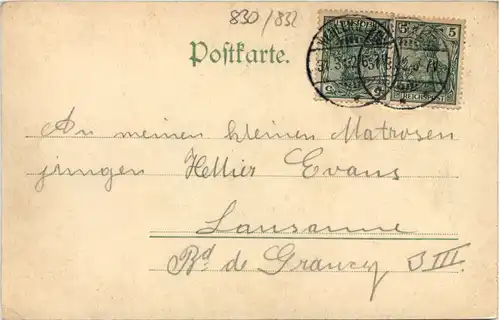 830/832
Postkarte.
5 5
REICHSPOST
An meinen kleinen Matrosen
jungen Hellier Evans
Lausanne
Bd de Grancy 3 III.